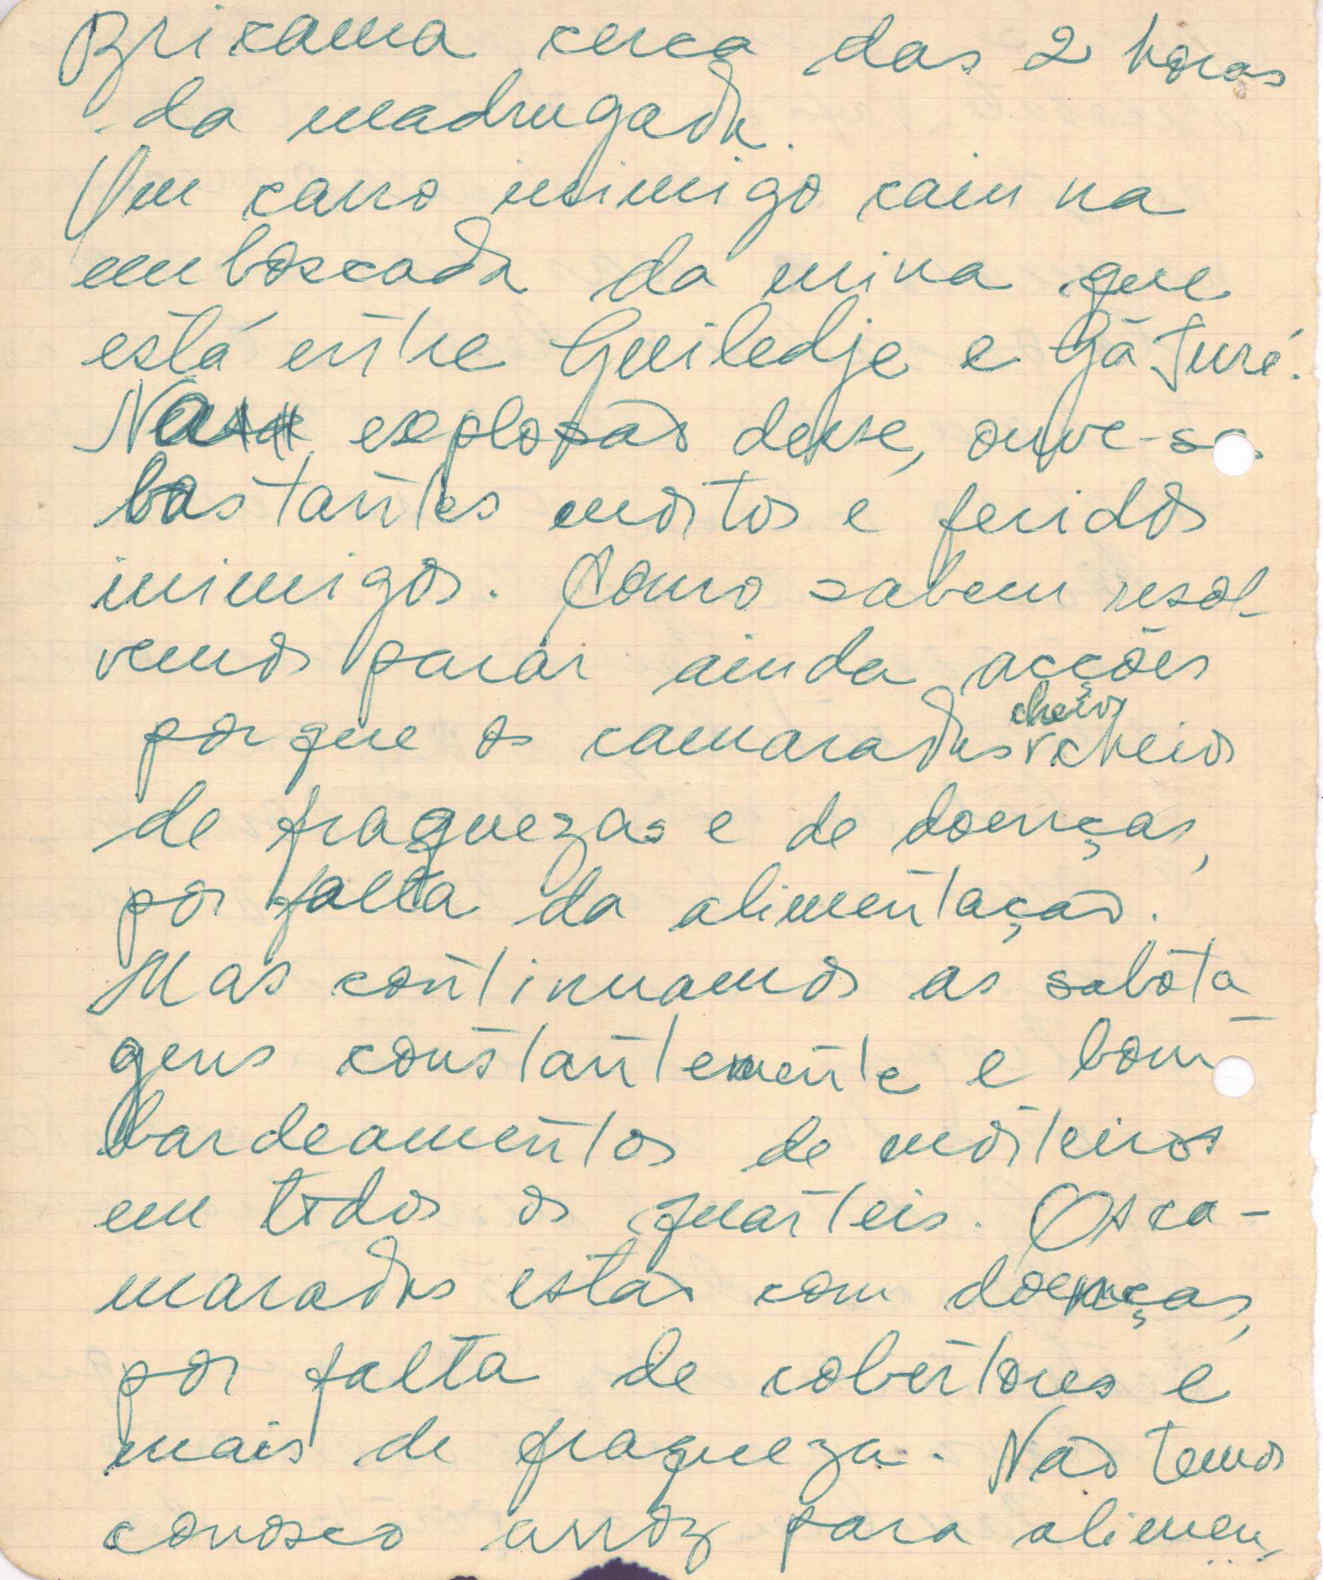 Brixama cerca das 2 horas
da madrugada.
Um carro inimigo caiu na
emboscada da mina que
está entre Guiledje e Gã Turé.
Na explosão desse, ouve-se
bastantes mortos e feridos
inimigos. Como sabem resol-
vemos parar ainda acções
porque os camaradas cheios
cheios
de fraquezas e de doenças,
por falta da alimentação.
Mas continuamos as sabota
gens constantemente e bom-
bardeamentos de morteiros
em todos os quartéis. Os ca-
maradas estão com doenças,
por falta de cobertores e
mais de fraqueza. Não temos
conosco arroz para alimen